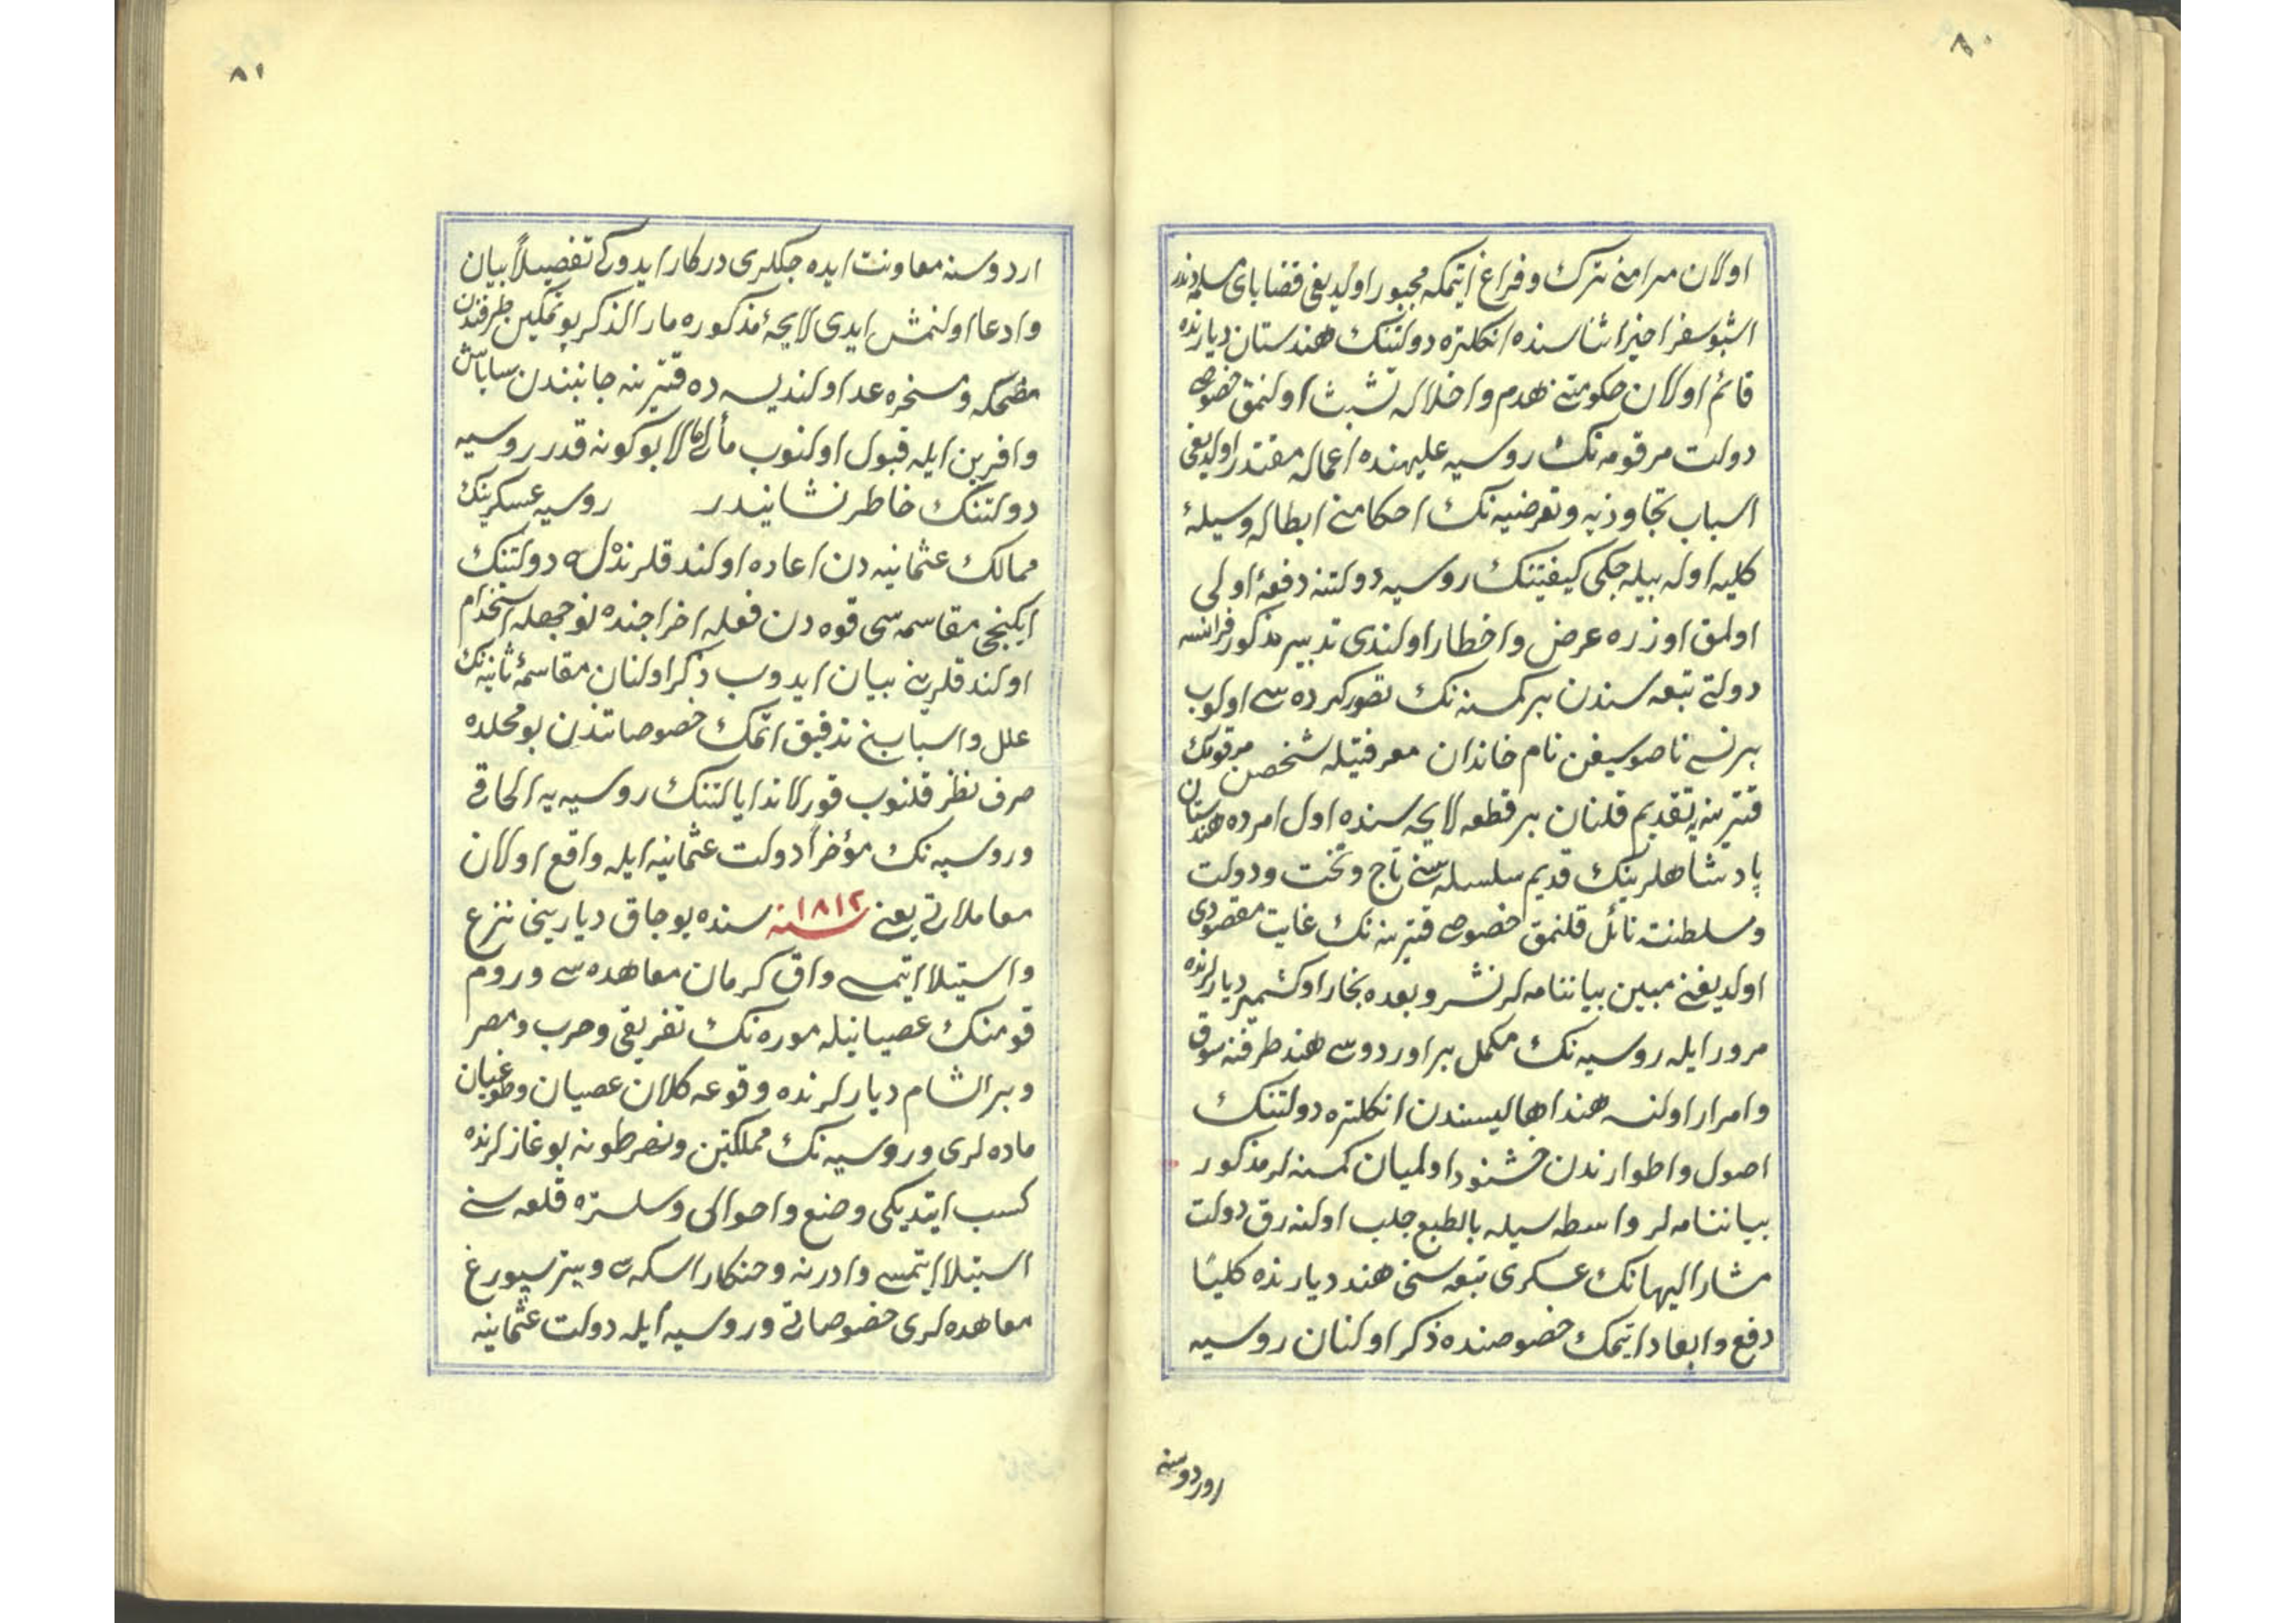 ٨٠
اولان مرامنی ترك و فراغ ایتمكه مجبور اولدیغی قضایای مسلمه دندر
اشبو سفر اخیر اثناسنده انكلتره دولتنك هندستان دیارنده
قائم اولان حكومتنی هدم و اخلاله تشبث اولنمق خصوصی
دولت مرقومه نك روسیه علیهنده اعماله مقتدر اولدیغی
اسباب تجاوزیه و تعرضیه نك احكامنی ابطاله وسیلهٔ
كلیه اوله بیله جكی كیفیتنك روسیه دولتنه دفعهٔ اولی
اولمق اوزره عرض و اخطار اولندی تدبیر مذكور فرانسه
دولتی تبعه سندن بر كمسنه نك تصور كرده سی اولوب
برنسی ناصو سیغن نام خاندان معرفتیله شخص مرقومك
قترینه یه تقدیم قلنان بر قطعه لایحه سنده اول امرده هندستان
پادشاهلرینك قدیم سلسله سنی تاج و تخت و دولت
و سلطنته نائل قلنمق خصوصی قترینه نك غایت مقصودی
اولدیغنی مبین بیاننامه لر نشر و بعده بخارا و كشمیر دیارلرنده
مرور ایله روسیه نك مكمل بر اوردوسی هند طرفنه سوق
و امرار اولنسه هند اهالیسندن انكلتره دولتنك
اصول و اطوارندن خشنود اولمیان كمسنه لر مذكور
بیاننامه لر واسطه سیله بالطبع جلب اولنه رق دولت
مشار الیهانك عسكری تبعه سنی هند دیارنده كلیًا
دفع و ابعاد ایتمك خصوصنده ذكر اولنان روسیه
اوردوسنه
٨١
اردوسنه معاونت ایده جكلری دركار ایدوكی تفصیلاً بیان
و ادعا اولنمش ایدی لایحهٔ مذكوره مار الذكر پوتمكین طرفندن
مضحكه و مسخره عد اولندیسه ده قترینه جانبندن ساباش
و افرین ایله قبول اولنوب مألی الی بو كونه قدر روسیه
دولتنك خاطر نشانیدر روسیه عسكرینك
ممالك عثمانیه دن اعاده اولندقلرنده له دولتنك
ایكنجی مقاسمه سی قوه دن فعله اخراجنده نوجهله استخدام
اولندقلرینی بیان ایدوب ذكر اولنان مقاسمهٔ ثانیه نك
علل و اسبابنی تدقیق اتمك خصوصاتندن بو محلده
صرف نظر قلنوب قورلاند ایالتنك روسیه یه الحاقی
و روسیه نك مؤخراً دولت عثمانیه ایله واقع اولان
معاملاتی یعنی ١٨١٢ سنه سنده بوجاق دیارینی نزع
و استیلا ایتمسی و اق كرمان معاهده سی و روم
قومنك عصیانیله موره نك تفریقی و حرب و مصر
و بر الشام دیارلرنده وقوعه كلان عصیان و طوغیان
ماده لری و روسیه نك مملكتین و نصر طونه بوغازلرنده
كسب ایتدیكی وضع و احوالی و سلستره قلعه سنی
استیلا ایتمسی و ادرنه و خنكار اسكله سی و پترسپورغ
معاهده لری خصوصاتی و روسیه ایله دولت عثمانیه